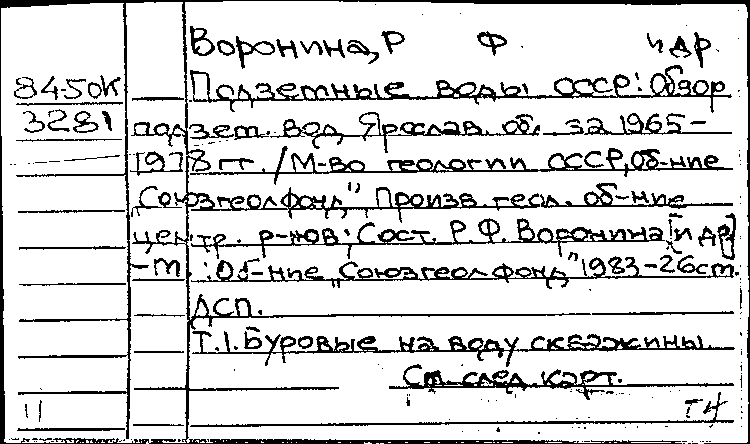 Воронина, Р Ф и др.
84-5ОК Подземные воды СССР: Обзор
3281 подзем. вод Ярослав. об. за 1965-
1978 гг. / М-во геологии СССР, Об-ние
"Союзгеолфонд", Произв. геол. об-ние
центр. р-нов; Сост. Р. Ф. Воронина [и др]
-М. : Об-ние "Союзгеолфонд" 1983-26см.
ДСП.
Т.1. Буровые на воду скважины.
См. след. карт.
11 Т4